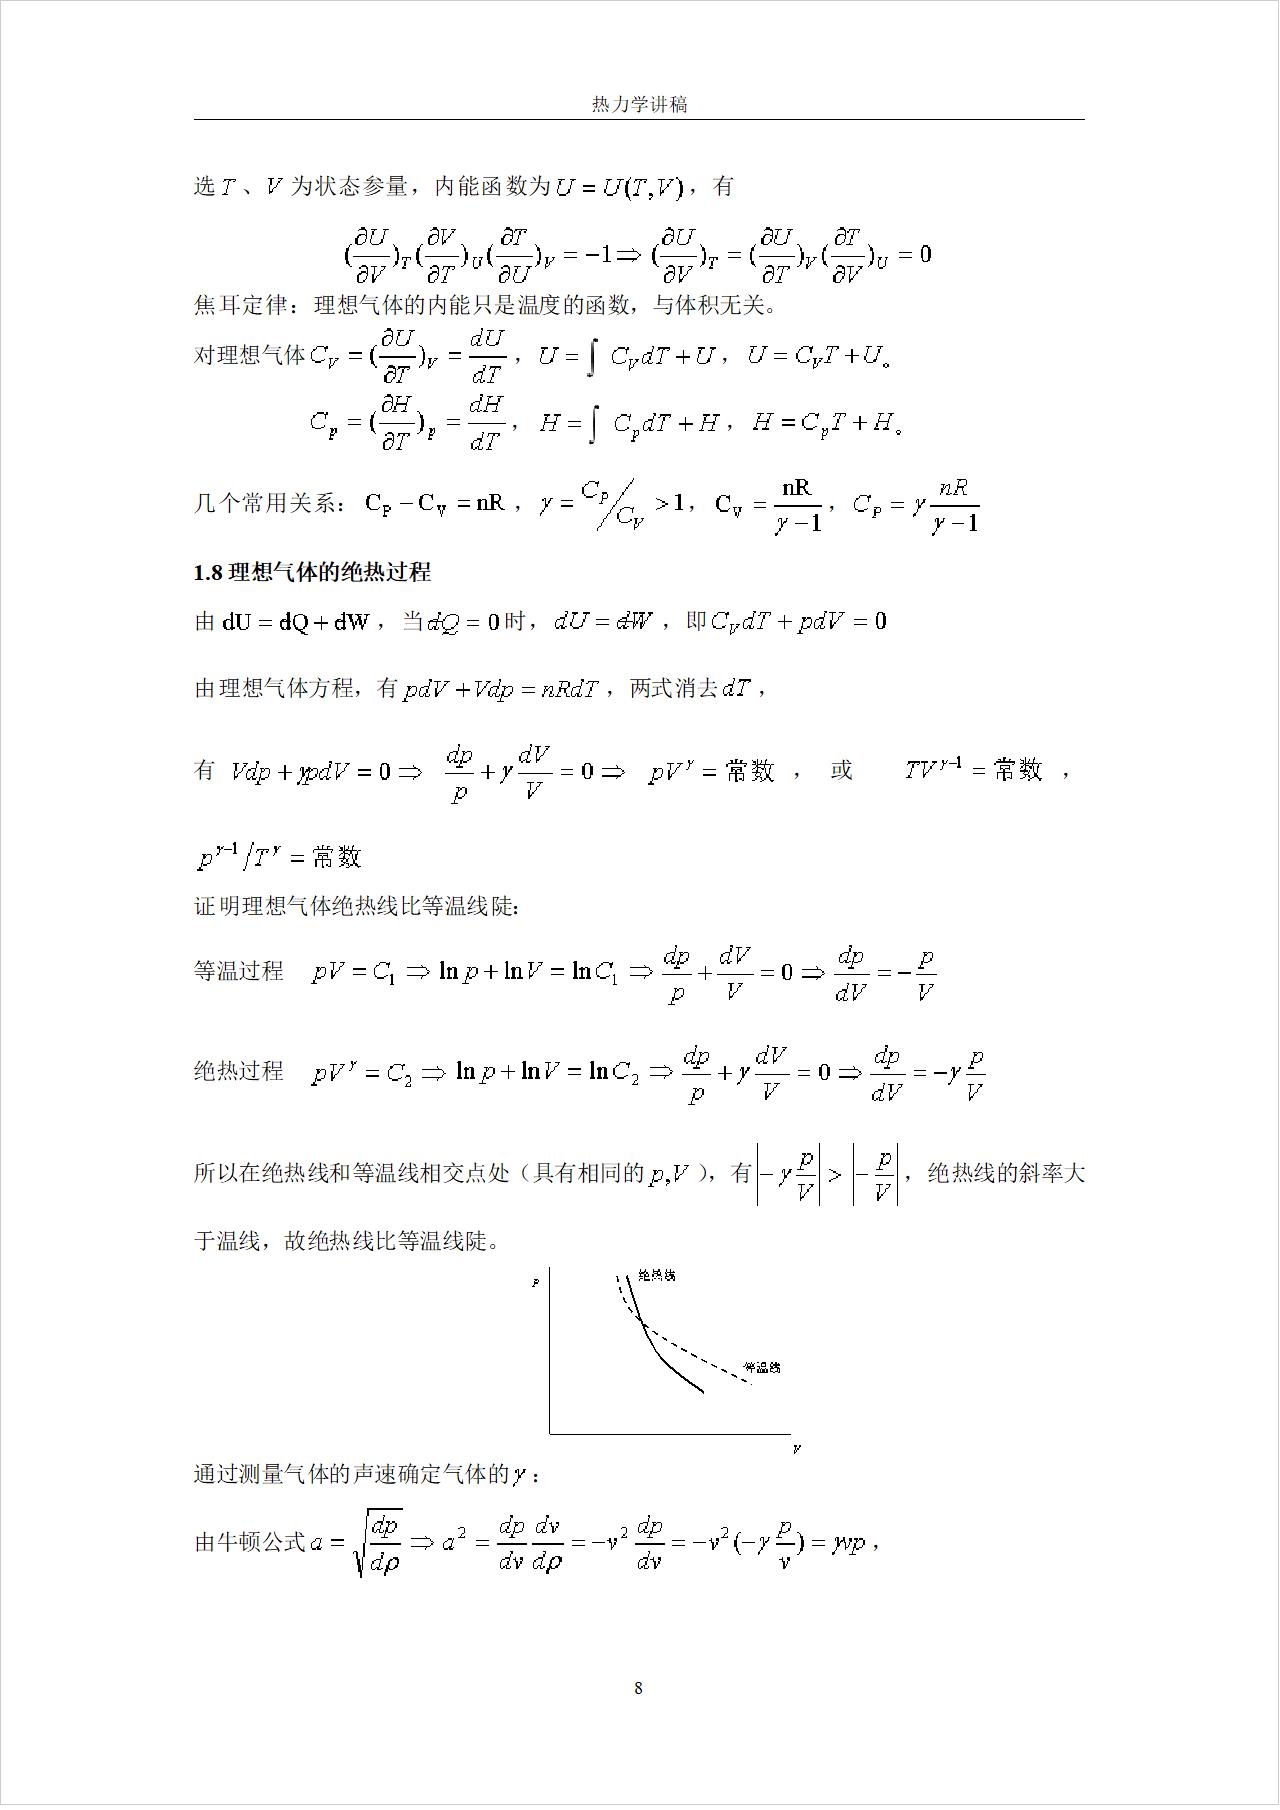 热力学讲稿
选 T 、V 为状态参量，内能函数为 U = U(T,V)，有
(∂U/∂V)_T (∂V/∂T)_U (∂T/∂U)_V = −1 ⇒ (∂U/∂V)_T = (∂U/∂T)_V (∂T/∂V)_U = 0
焦耳定律：理想气体的内能只是温度的函数，与体积无关。
对理想气体 C_V = (∂U/∂T)_V = dU/dT ，U = ∫ C_V dT + U ，U = C_V T + U。
C_p = (∂H/∂T)_p = dH/dT ，H = ∫ C_p dT + H ，H = C_p T + H。
几个常用关系：C_P − C_V = nR ，γ = C_P/C_V > 1，C_V = nR/(γ−1) ，C_P = γ nR/(γ−1)
1.8 理想气体的绝热过程
由 dU = đQ + đW ，当 đQ = 0 时，dU = đW ，即 C_V dT + pdV = 0
由理想气体方程，有 pdV + Vdp = nRdT ，两式消去 dT ，
有 Vdp + γpdV = 0 ⇒ dp/p + γ dV/V = 0 ⇒ pV^γ = 常数 ， 或 TV^(γ−1) = 常数 ，
p^(γ−1)/T^γ = 常数
证明理想气体绝热线比等温线陡：
等温过程 pV = C_1 ⇒ ln p + ln V = ln C_1 ⇒ dp/p + dV/V = 0 ⇒ dp/dV = − p/V
绝热过程 pV^γ = C_2 ⇒ ln p + ln V = ln C_2 ⇒ dp/p + γ dV/V = 0 ⇒ dp/dV = −γ p/V
所以在绝热线和等温线相交点处（具有相同的 p,V ），有 |−γ p/V| > |− p/V|，绝热线的斜率大
于温线，故绝热线比等温线陡。
P
绝热线
等温线
V
通过测量气体的声速确定气体的 γ ：
由牛顿公式 a = √(dp/dρ) ⇒ a² = dp/dv dv/dρ = −v² dp/dv = −v²(−γ p/v) = γvp ，
8